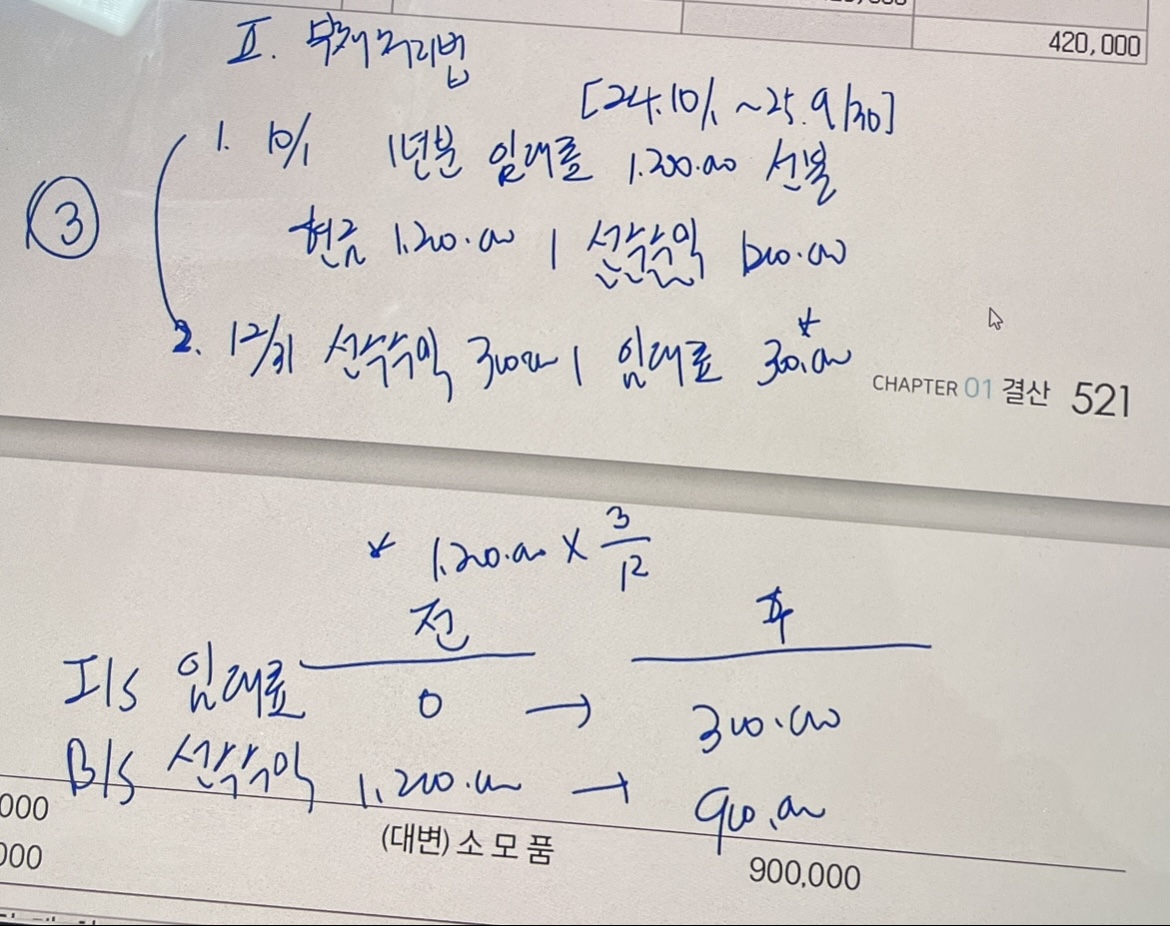 420,000
II. 부채처리법
[24.10/1 ~25.9/30]
1. 10/1 1년분 임대료 1.200.000 선불
③
현금 1.200.000 | 선수수익 1200.000
2. 12/31 선수수익 300000 | 임대료 300.000 *
CHAPTER 01 결산 521
* 1.200.000 × 3/12
전 후
I/S 임대료 0 → 300.000
B/S 선수수익 1,200.000 → 900.000
000
(대변) 소 모 품 900,000
000